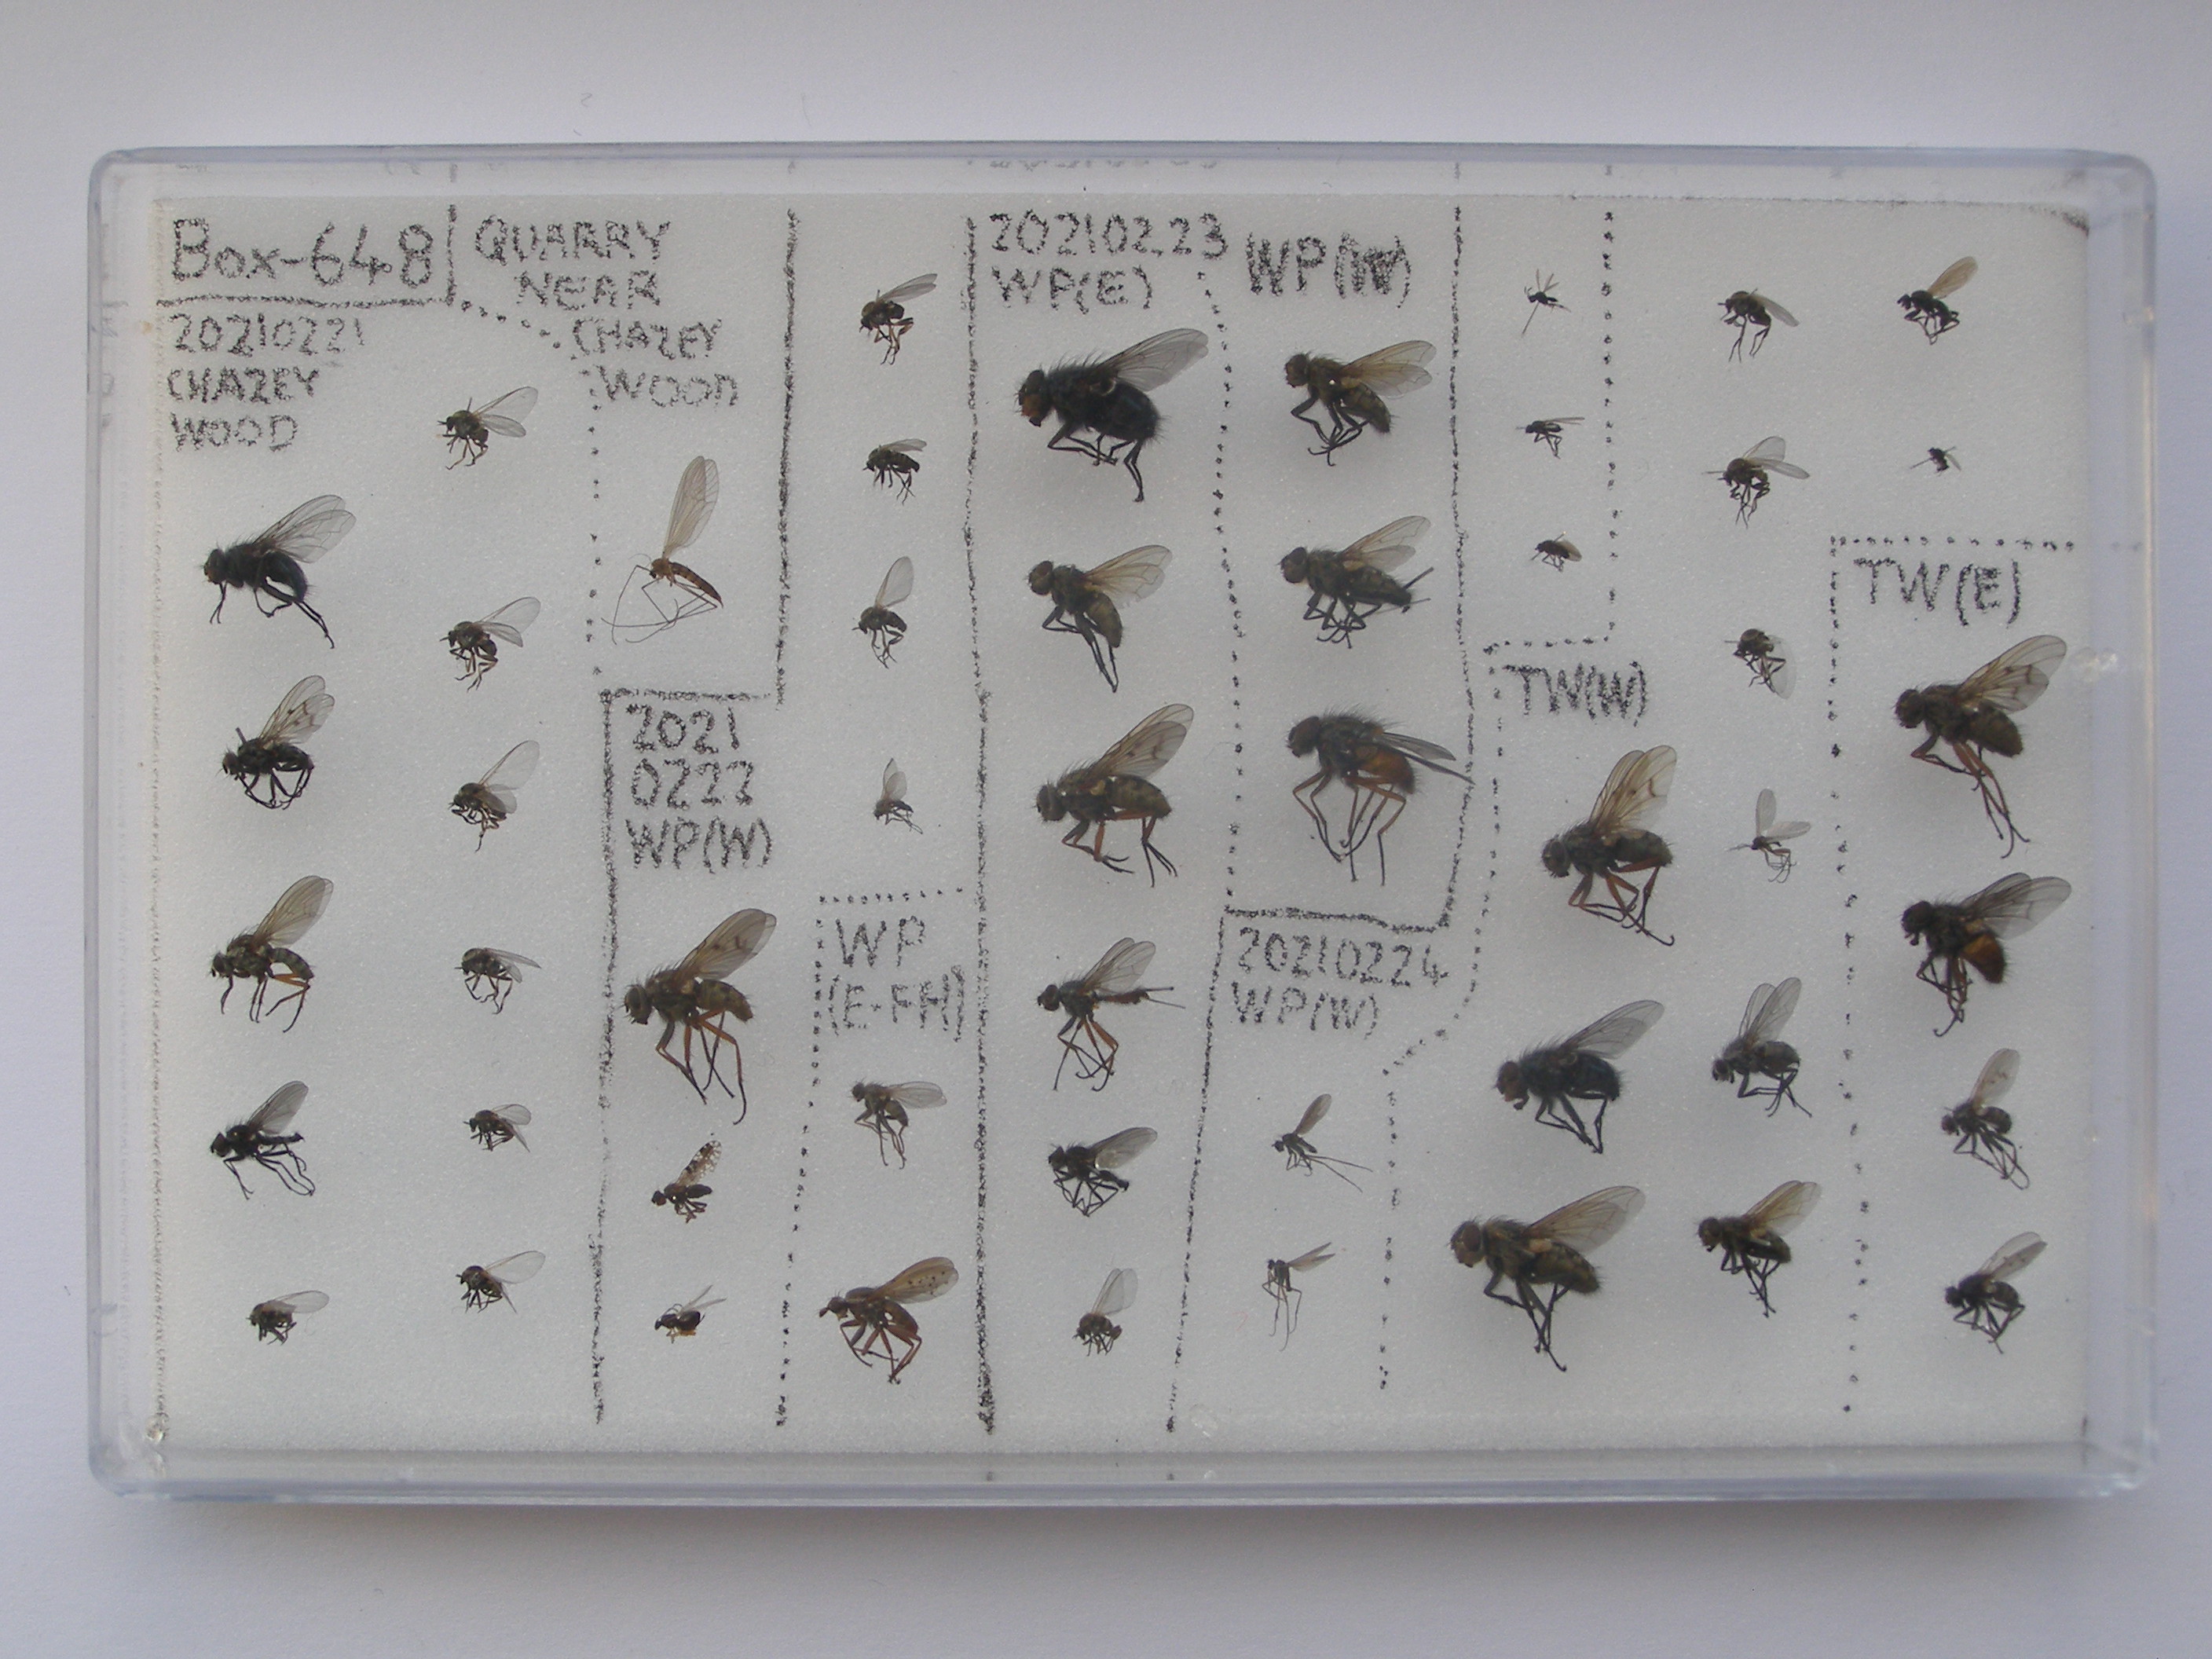 Box-648
20210221
CHAZEY
WOOD
QUARRY
NEAR
CHAZEY
WOOD
2021
0222
WP(W)
WP
(E·FH)
20210223
WP(E)
WP(W)
20210224
WP(W)
TW(W)
TW(E)